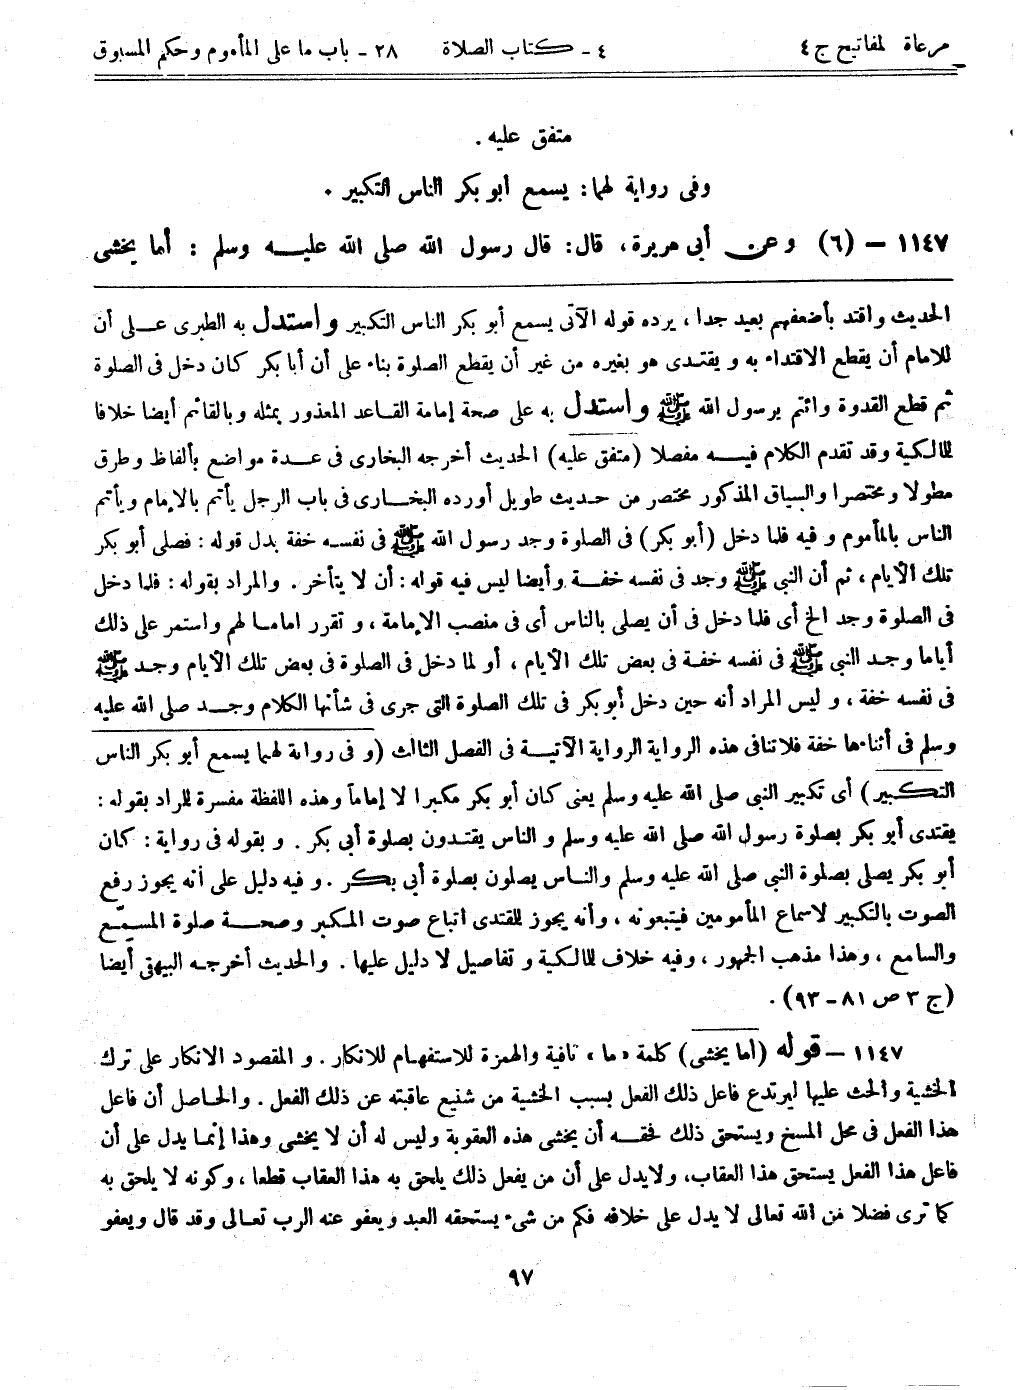 مرعاة المفاتيح ج ٤ ٤ - كتاب الصلاة ٢٨ - باب ما على المأموم وحكم المسبوق
متفق عليه .
وفى رواية لهما: يسمع أبو بكر الناس التكبير .
١١٤٧ – (٦) وعن أبى هريرة، قال: قال رسول الله صلى الله عليه وسلم : أما يخشى
الحديث واقتد بأضعفهم بعيد جدا ، يرده قوله الآتى يسمع أبو بكر الناس التكبير واستدل به الطبرى على أن
للامام أن يقطع الاقتداء به ويقتدى هو بغيره من غير أن يقطع الصلوة بناء على أن أبا بكر كان دخل فى الصلوة
ثم قطع القدوة وائتم برسول الله ﷺ واستدل به على صحة إمامة القاعد المعذور بمثله وبالقائم أيضا خلافا
للمالكية وقد تقدم الكلام فيه مفصلا (متفق عليه) الحديث أخرجه البخارى فى عدة مواضع بألفاظ وطرق
مطولا ومختصرا والسياق المذكور مختصر من حديث طويل أورده البخارى فى باب الرجل يأتم بالإمام ويأتم
الناس بالمأموم وفيه فلما دخل (أبو بكر) فى الصلوة وجد رسول الله ﷺ فى نفسه خفة بدل قوله : فصلى أبو بكر
تلك الأيام ، ثم أن النبى ﷺ وجد فى نفسه خفة وأيضا ليس فيه قوله : أن لا يتأخر . والمراد بقوله : فلما دخل
فى الصلوة وجد الخ أى فلما دخل فى أن يصلى بالناس أى فى منصب الإمامة ، وتقرر اماما لهم واستمر على ذلك
أياما وجد النبى ﷺ فى نفسه خفة فى بعض تلك الأيام ، أو لما دخل فى الصلوة فى بعض تلك الأيام وجد ﷺ
فى نفسه خفة ، وليس المراد أنه حين دخل أبو بكر فى تلك الصلوة التى جرى فى شأنها الكلام وجد صلى الله عليه
وسلم فى أثناءها خفة فلا تنافى هذه الرواية الرواية الآتية فى الفصل الثالث (وفى رواية لهما يسمع أبو بكر الناس
التكبير) أى تكبير النبى صلى الله عليه وسلم يعنى كان أبو بكر مكبرا لا إماماً وهذه اللفظة مفسرة للمراد بقوله :
يقتدى أبو بكر بصلوة رسول الله صلى الله عليه وسلم والناس يقتدون بصلوة أبى بكر . وبقوله فى رواية : كان
أبو بكر يصلى بصلوة النبى صلى الله عليه وسلم والناس يصلون بصلوة أبى بكر . وفيه دليل على أنه يجوز رفع
الصوت بالتكبير لاسماع المأمومين فيتبعونه ، وأنه يجوز للمقتدى اتباع صوت المكبر وصحة صلوة المسمّع
والسامع ، وهذا مذهب الجمهور ، وفيه خلاف للمالكية وتفاصيل لا دليل عليها . والحديث أخرجه البيهقى أيضا
(ج ٣ ص ٨١ – ٩٣) .
١١٤٧ – قوله (أما يخشى) كلمة «ما» نافية والهمزة للاستفهام للانكار . والمقصود الانكار على ترك
الخشية والحث عليها ليرتدع فاعل ذلك الفعل بسبب الخشية من شنيع عاقبته عن ذلك الفعل . والحاصل أن فاعل
هذا الفعل فى محل المسخ ويستحق ذلك فحقه أن يخشى هذه العقوبة وليس له أن لا يخشى وهذا إنما يدل على أن
فاعل هذا الفعل يستحق هذا العقاب، ولا يدل على أن من يفعل ذلك يلحق به هذا العقاب قطعا ، وكونه لا يلحق به
كما ترى فضلا من الله تعالى لا يدل على خلافه فكم من شىء يستحقه العبد ويعفو عنه الرب تعالى وقد قال ويعفو
٩٧